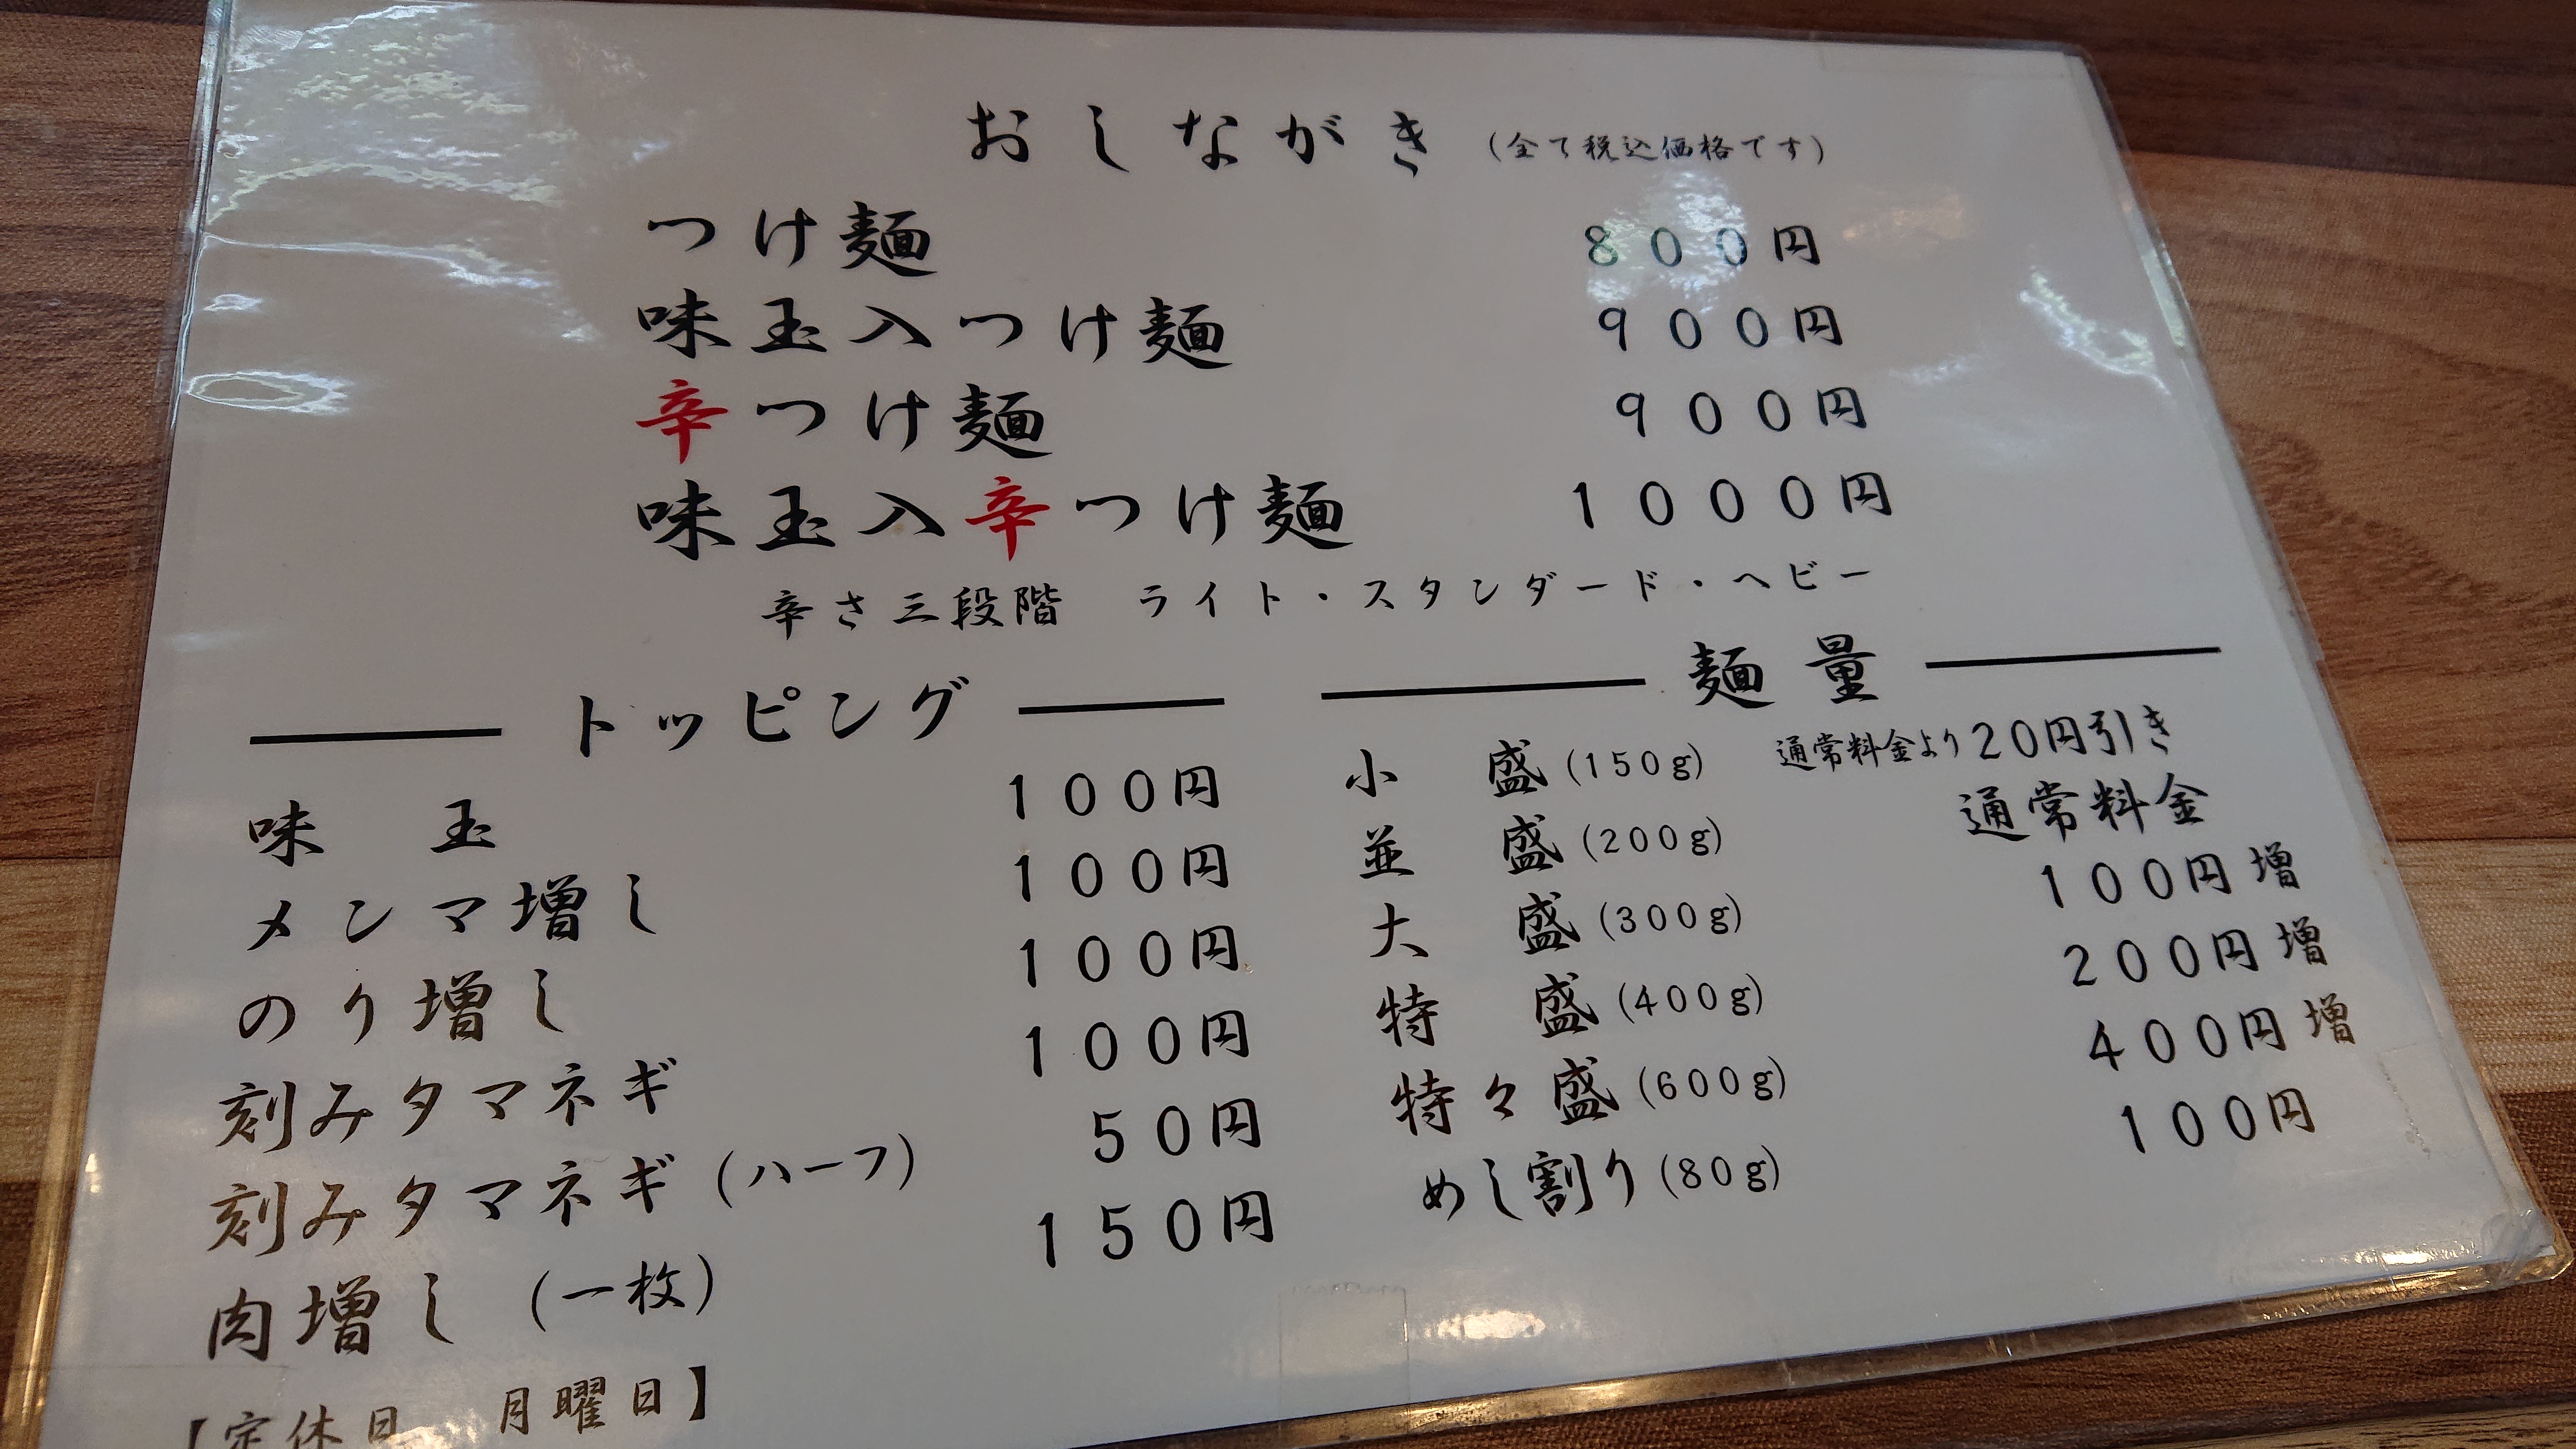 おしながき (全て税込価格です)
つけ麺 800円
味玉入つけ麺 900円
辛つけ麺 900円
味玉入辛つけ麺 1000円
辛さ三段階 ライト・スタンダード・ヘビー
トッピング
味玉 100円
メンマ増し 100円
のり増し 100円
刻みタマネギ 100円
刻みタマネギ (ハーフ) 50円
肉増し (一枚) 150円
【定休日 月曜日】
麺量
小盛(150g) 通常料金より20円引き
並盛(200g) 通常料金
大盛(300g) 100円増
特盛(400g) 200円増
特々盛(600g) 400円増
めし割り(80g) 100円